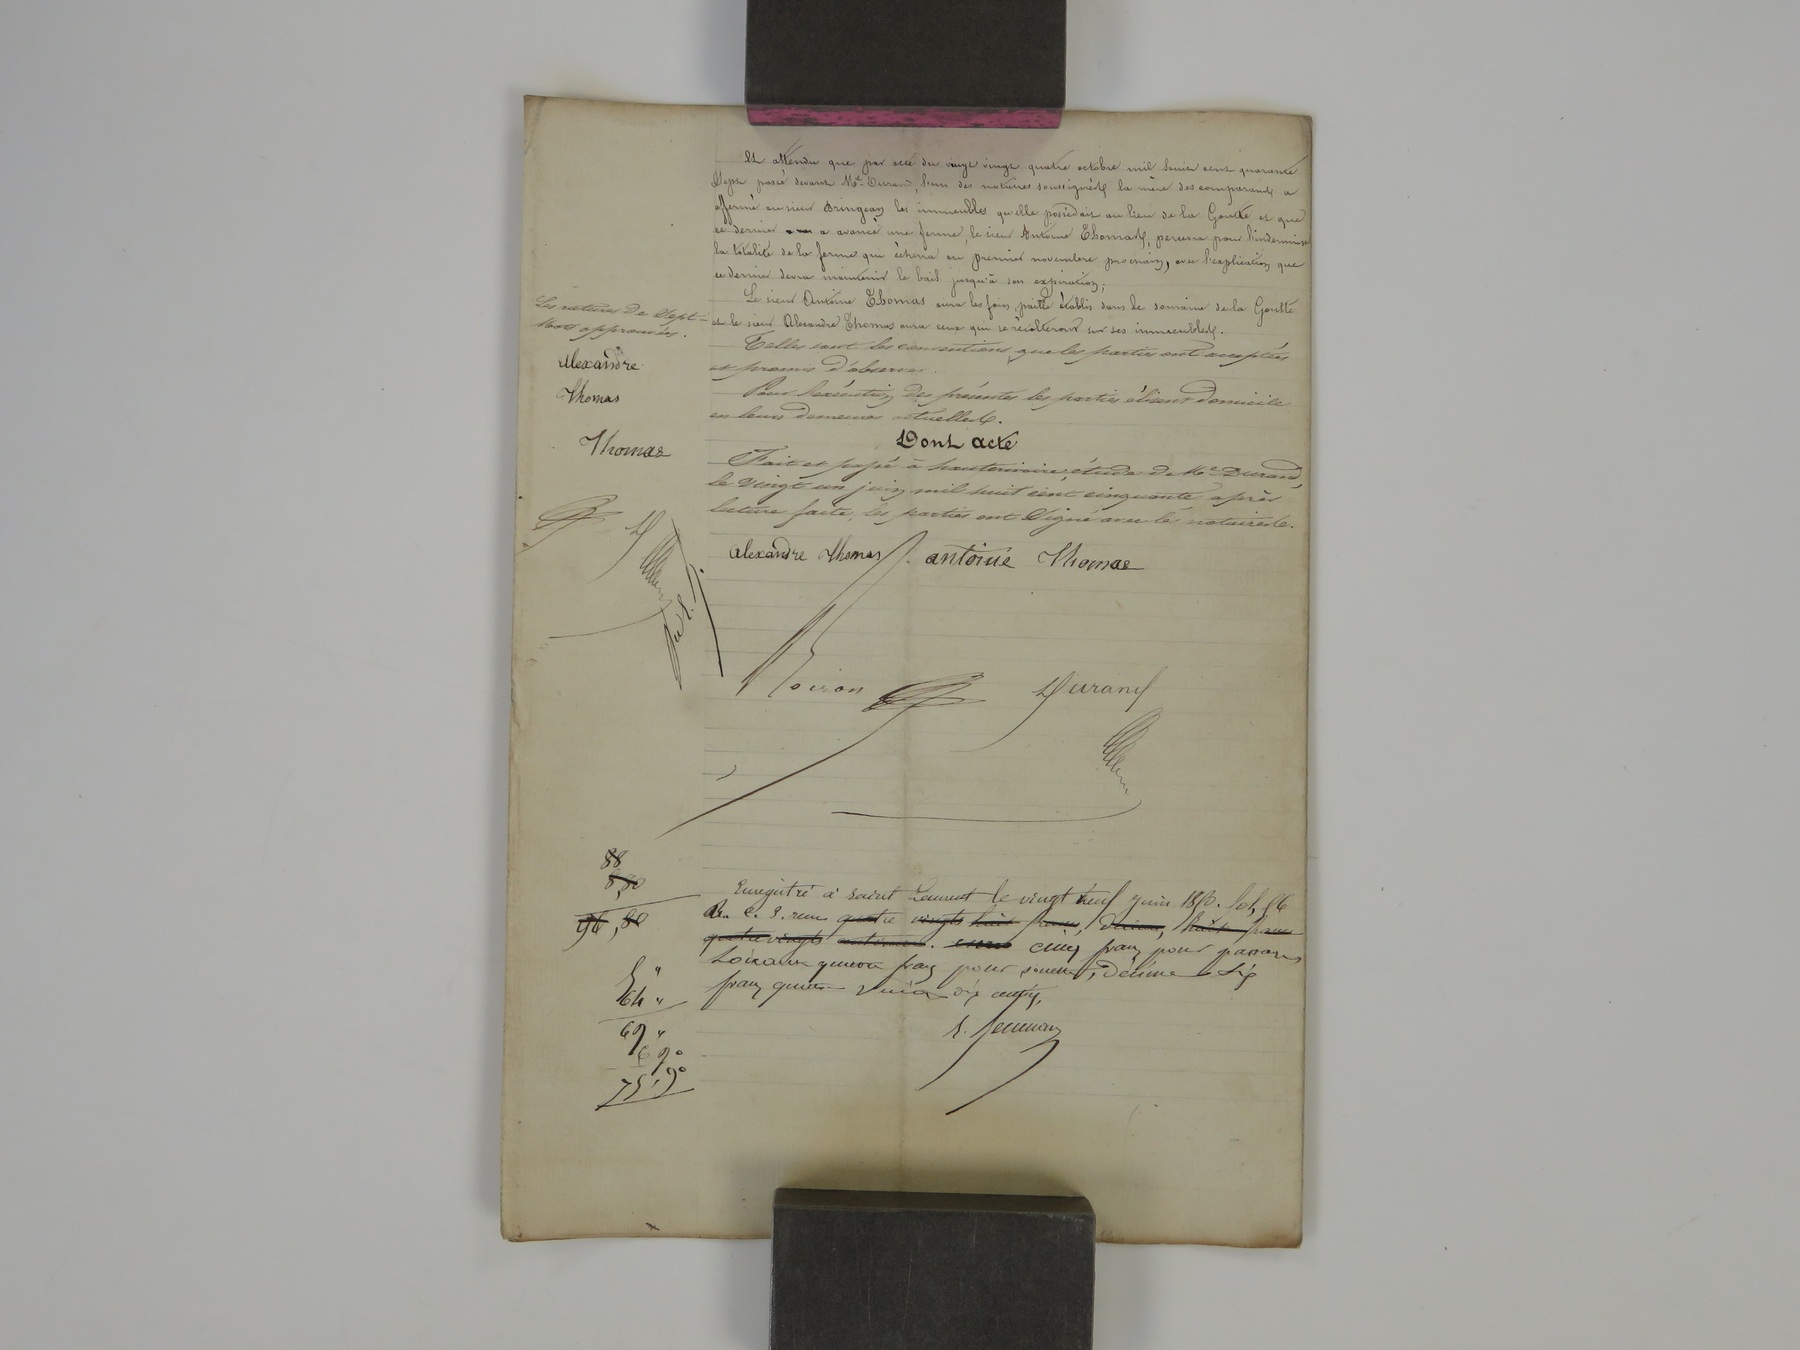 Et attendu que par acte du vingt vingt quatre octobre mil huit cent quarante
Sept passé devant Me Durand, l'un des notaires soussignés la mère des comparants a
affermé au sieur Bringeon les immeubles qu'elle possédait au lieu de la Goutte et que
ce dernier a avancé une ferme, le sieur Antoine Thomas, percevra pour l'indemniser
la totalité de la ferme qui écherra au premier novembre prochain, avec l'explication que
ce dernier devra maintenir le bail jusqu'à son expiration;
Le sieur Antoine Thomas aura les foins, paille établis dans le domaine de la Goutte
et le sieur Alexandre Thomas aura ceux qui se récolteront sur ses immeubles.
Telles sont les conventions que les parties ont acceptées
et promis d'observer.
Pour l'exécution des présentes les parties élisent domicile
en leurs demeures actuelles.
Dont acte
Fait et passé à hauterivoire, étude de Me Durand,
le vingt un juin mil huit cent cinquante après
lecture faite, les parties ont Signé avec les notaires.
Les ratures de Sept
mots approuvées.
Alexandre
Thomas
Thomas
alexandre Thomas antoine Thomas
Coiron Durand
88
8,80
96,80
5 "
64 "
69 "
6 90
75,90
Enregistré à saint Laurent le vingt neuf juin 1850. fol, 56
quatre vingts huit francs, Décime, huit francs
quatre vingts centimes. cinq francs pour
francs pour soulte, Décime Six
francs quatre vingt dix cent.